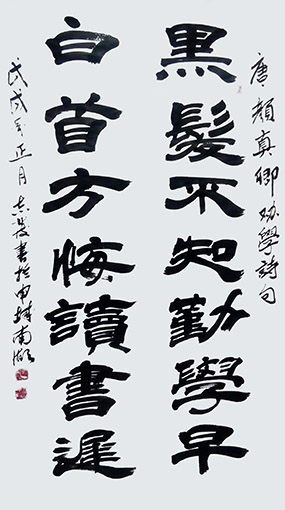 唐顔真卿劝學詩句
黑髮不知勤學早
白首方悔讀書遲
戊戌年正月志書於申城南湖